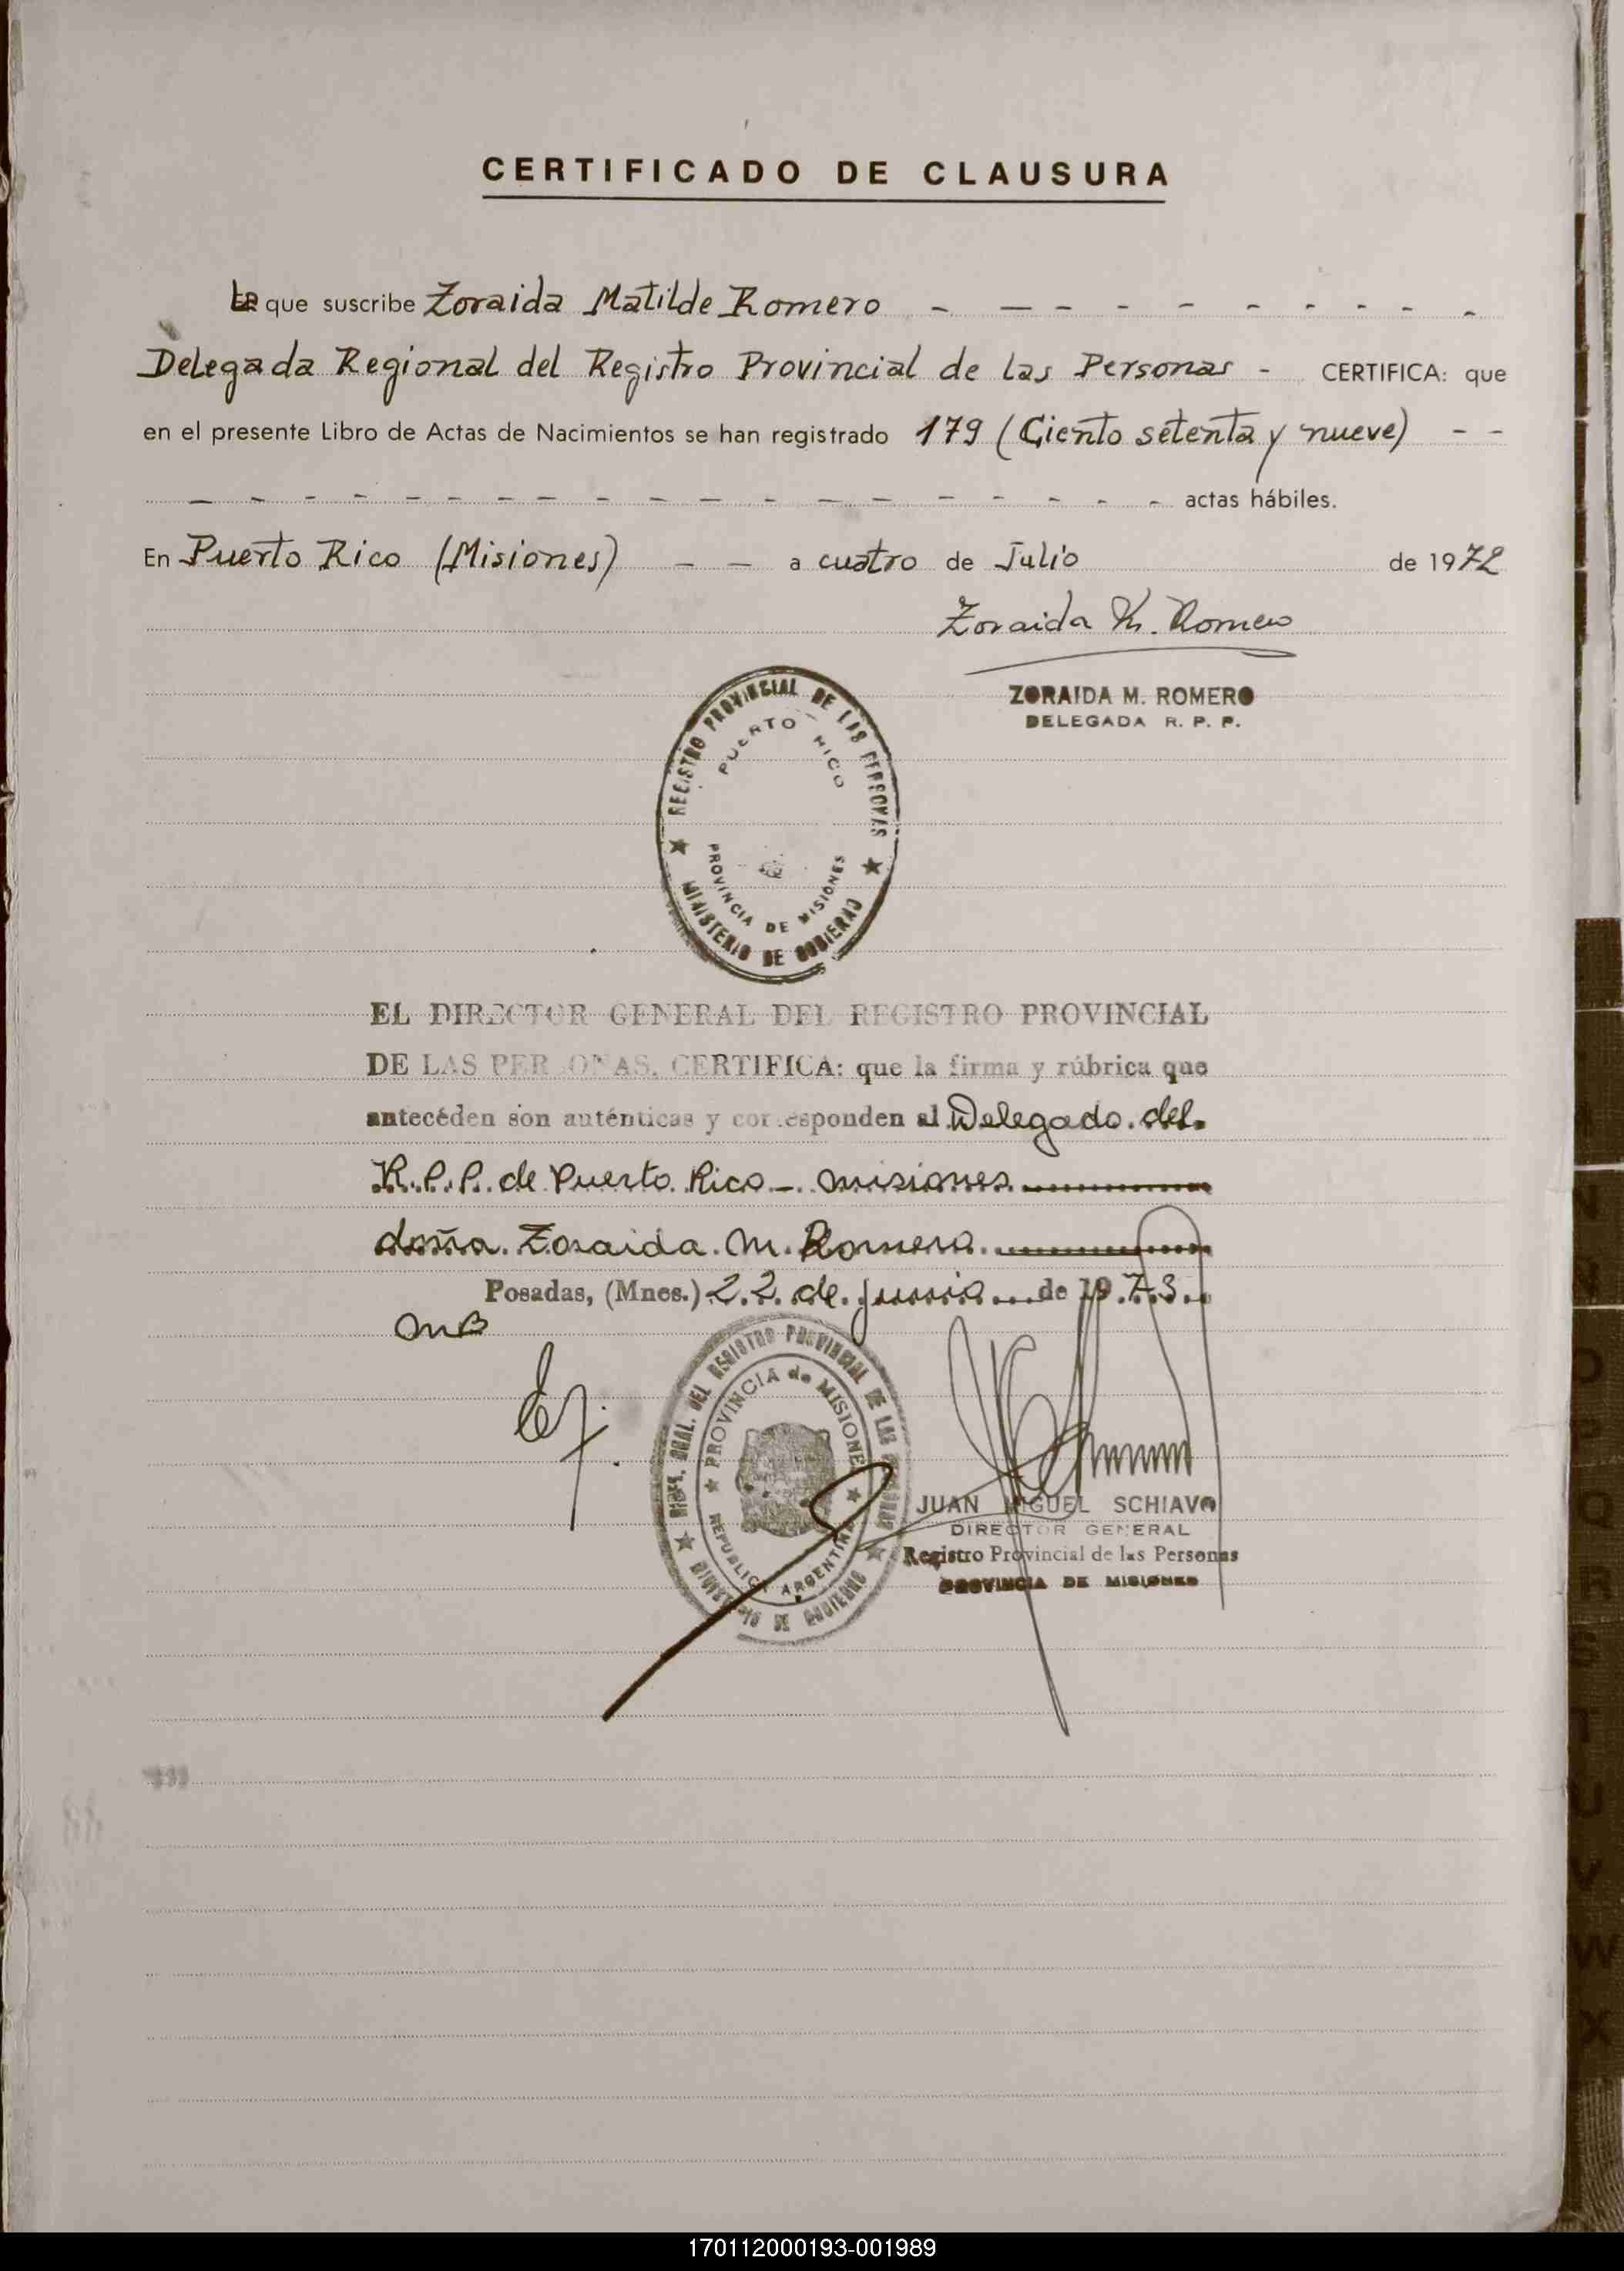 CERTIFICADO DE CLAUSURA
La que suscribe Zoraida Matilde Romero - - - - - - - - - -
Delegada Regional del Registro Provincial de las Personas - CERTIFICA: que
en el presente Libro de Actas de Nacimientos se han registrado 179 (Ciento setenta y nueve) - -
- - - - - - - - - - - - - - - - - - actas hábiles.
En Puerto Rico (Misiones) - - a cuatro de Julio de 1972
Zoraida M. Romero
ZORAIDA M. ROMERO
DELEGADA R. P. P.
REGISTRO PROVINCIAL DE LAS PERSONAS
PUERTO RICO
PROVINCIA DE MISIONES
MINISTERIO DE GOBIERNO
EL DIRECTOR GENERAL DEL REGISTRO PROVINCIAL
DE LAS PERSONAS, CERTIFICA: que la firma y rúbrica que
antecéden son auténticas y corresponden al Delegado del
R.P.P. de Puerto Rico - Misiones
doña Zoraida M. Romero
Posadas, (Mnes.) 22 de junio de 1973
DIREC. GRAL. DEL REGISTRO PROVINCIAL DE LAS PERSONAS
PROVINCIA de MISIONES
REPUBLICA ARGENTINA
MINISTERIO DE GOBIERNO
JUAN MIGUEL SCHIAVO
DIRECTOR GENERAL
Registro Provincial de las Personas
PROVINCIA DE MISIONES
N
O
P
Q
R
S
T
U
V
W
X
170112000193-001989